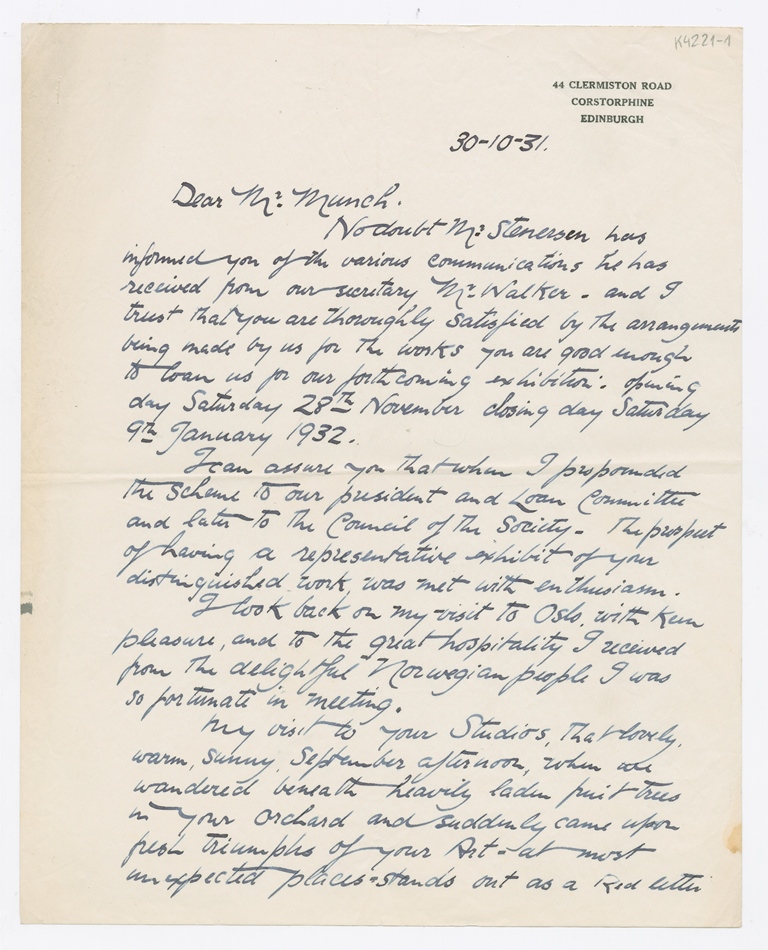 K4221-1
44 CLERMISTON ROAD
CORSTORPHINE
EDINBURGH
30-10-31.
Dear Mr. Munch.
No doubt Mr. Stenersen has
informed you of the various communications he has
received from our secretary Mr. Walker - and I
trust that you are thoroughly satisfied by the arrangements
being made by us for the works you are good enough
to loan us for our forthcoming exhibition - opening
day Saturday 28th November closing day Saturday
9th January 1932.
I can assure you that when I propounded
the scheme to our president and Loan Committee
and later to the Council of the Society - the prospect
of having a representative exhibit of your
distinguished work, was met with enthusiasm.
I look back on my visit to Oslo, with keen
pleasure, and to the great hospitality I received
from the delightful Norwegian people I was
so fortunate in meeting.
My visit to your Studios, that lovely,
warm, sunny, September afternoon, when we
wandered beneath heavily laden fruit trees
in your orchard and suddenly came upon
fresh triumphs of your Art - at most
unexpected places - stands out as a Red letter